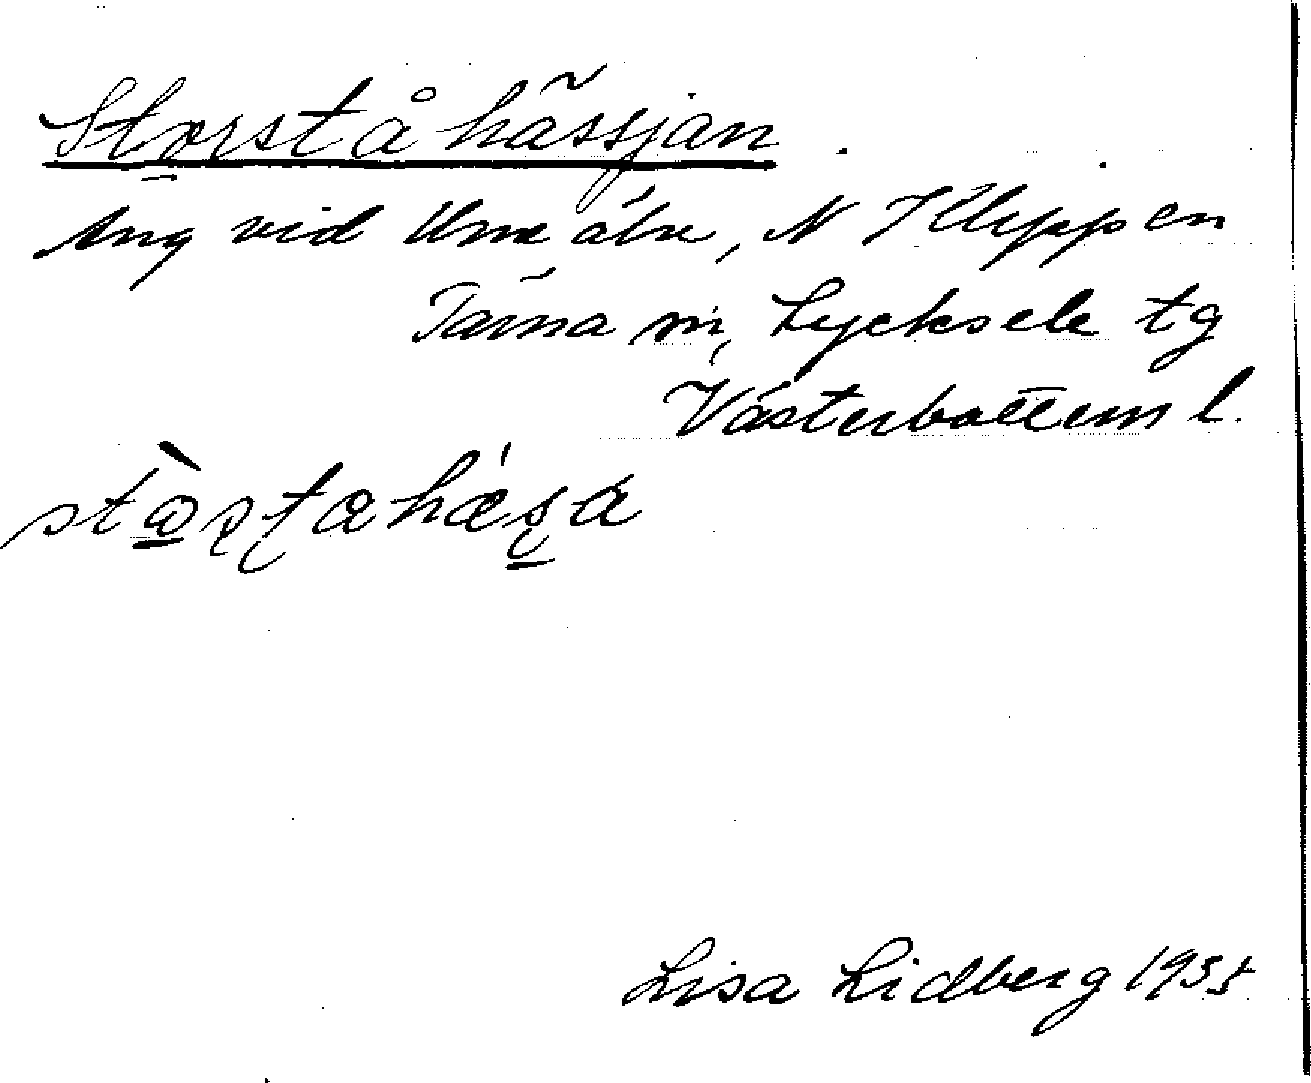 Storståhässjan.
Äng vid Ume älv, N Klippen
Tärna sn, Lycksele tg
Västerbottens l.
Lisa Lidberg 1935